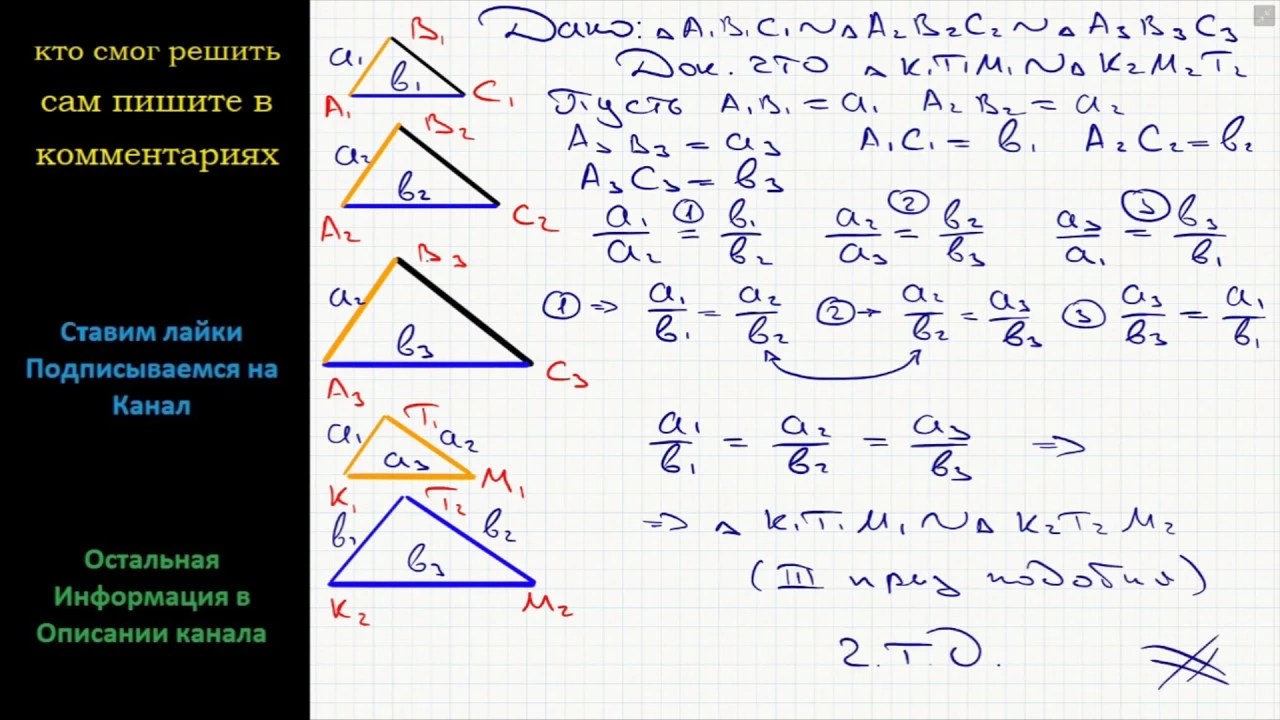 кто смог решить
сам пишите в
комментариях
Ставим лайки
Подписываемся на
Канал
Остальная
Информация в
Описании канала
B₁
a₁
b₁
A₁
C₁
B₂
a₂
b₂
A₂
C₂
B₃
a₂
b₃
A₃
C₃
T₁
a₁
a₂
a₃
K₁
M₁
T₂
b₂
b₃
K₂
M₂
Дано: △ A₁B₁C₁ ~ △ A₂B₂C₂ ~ △ A₃B₃C₃
Док. что △ K₁T₁M₁ ~ △ K₂M₂T₂
Пусть A₁B₁ = a₁ A₂B₂ = a₂
A₃B₃ = a₃ A₁C₁ = b₁ A₂C₂ = b₂
A₃C₃ = b₃
a₁/a₂ =① b₁/b₂ a₂/a₃ =② b₂/b₃ a₃/a₁ =③ b₃/b₁
① => a₁/b₁ = a₂/b₂ ② → a₂/b₂ = a₃/b₃ ③ a₃/b₃ = a₁/b₁
a₁/b₁ = a₂/b₂ = a₃/b₃ =>
=> △ K₁T₁M₁ ~ △ K₂T₂M₂
(III приз подобия)
Ч.Т.Д.